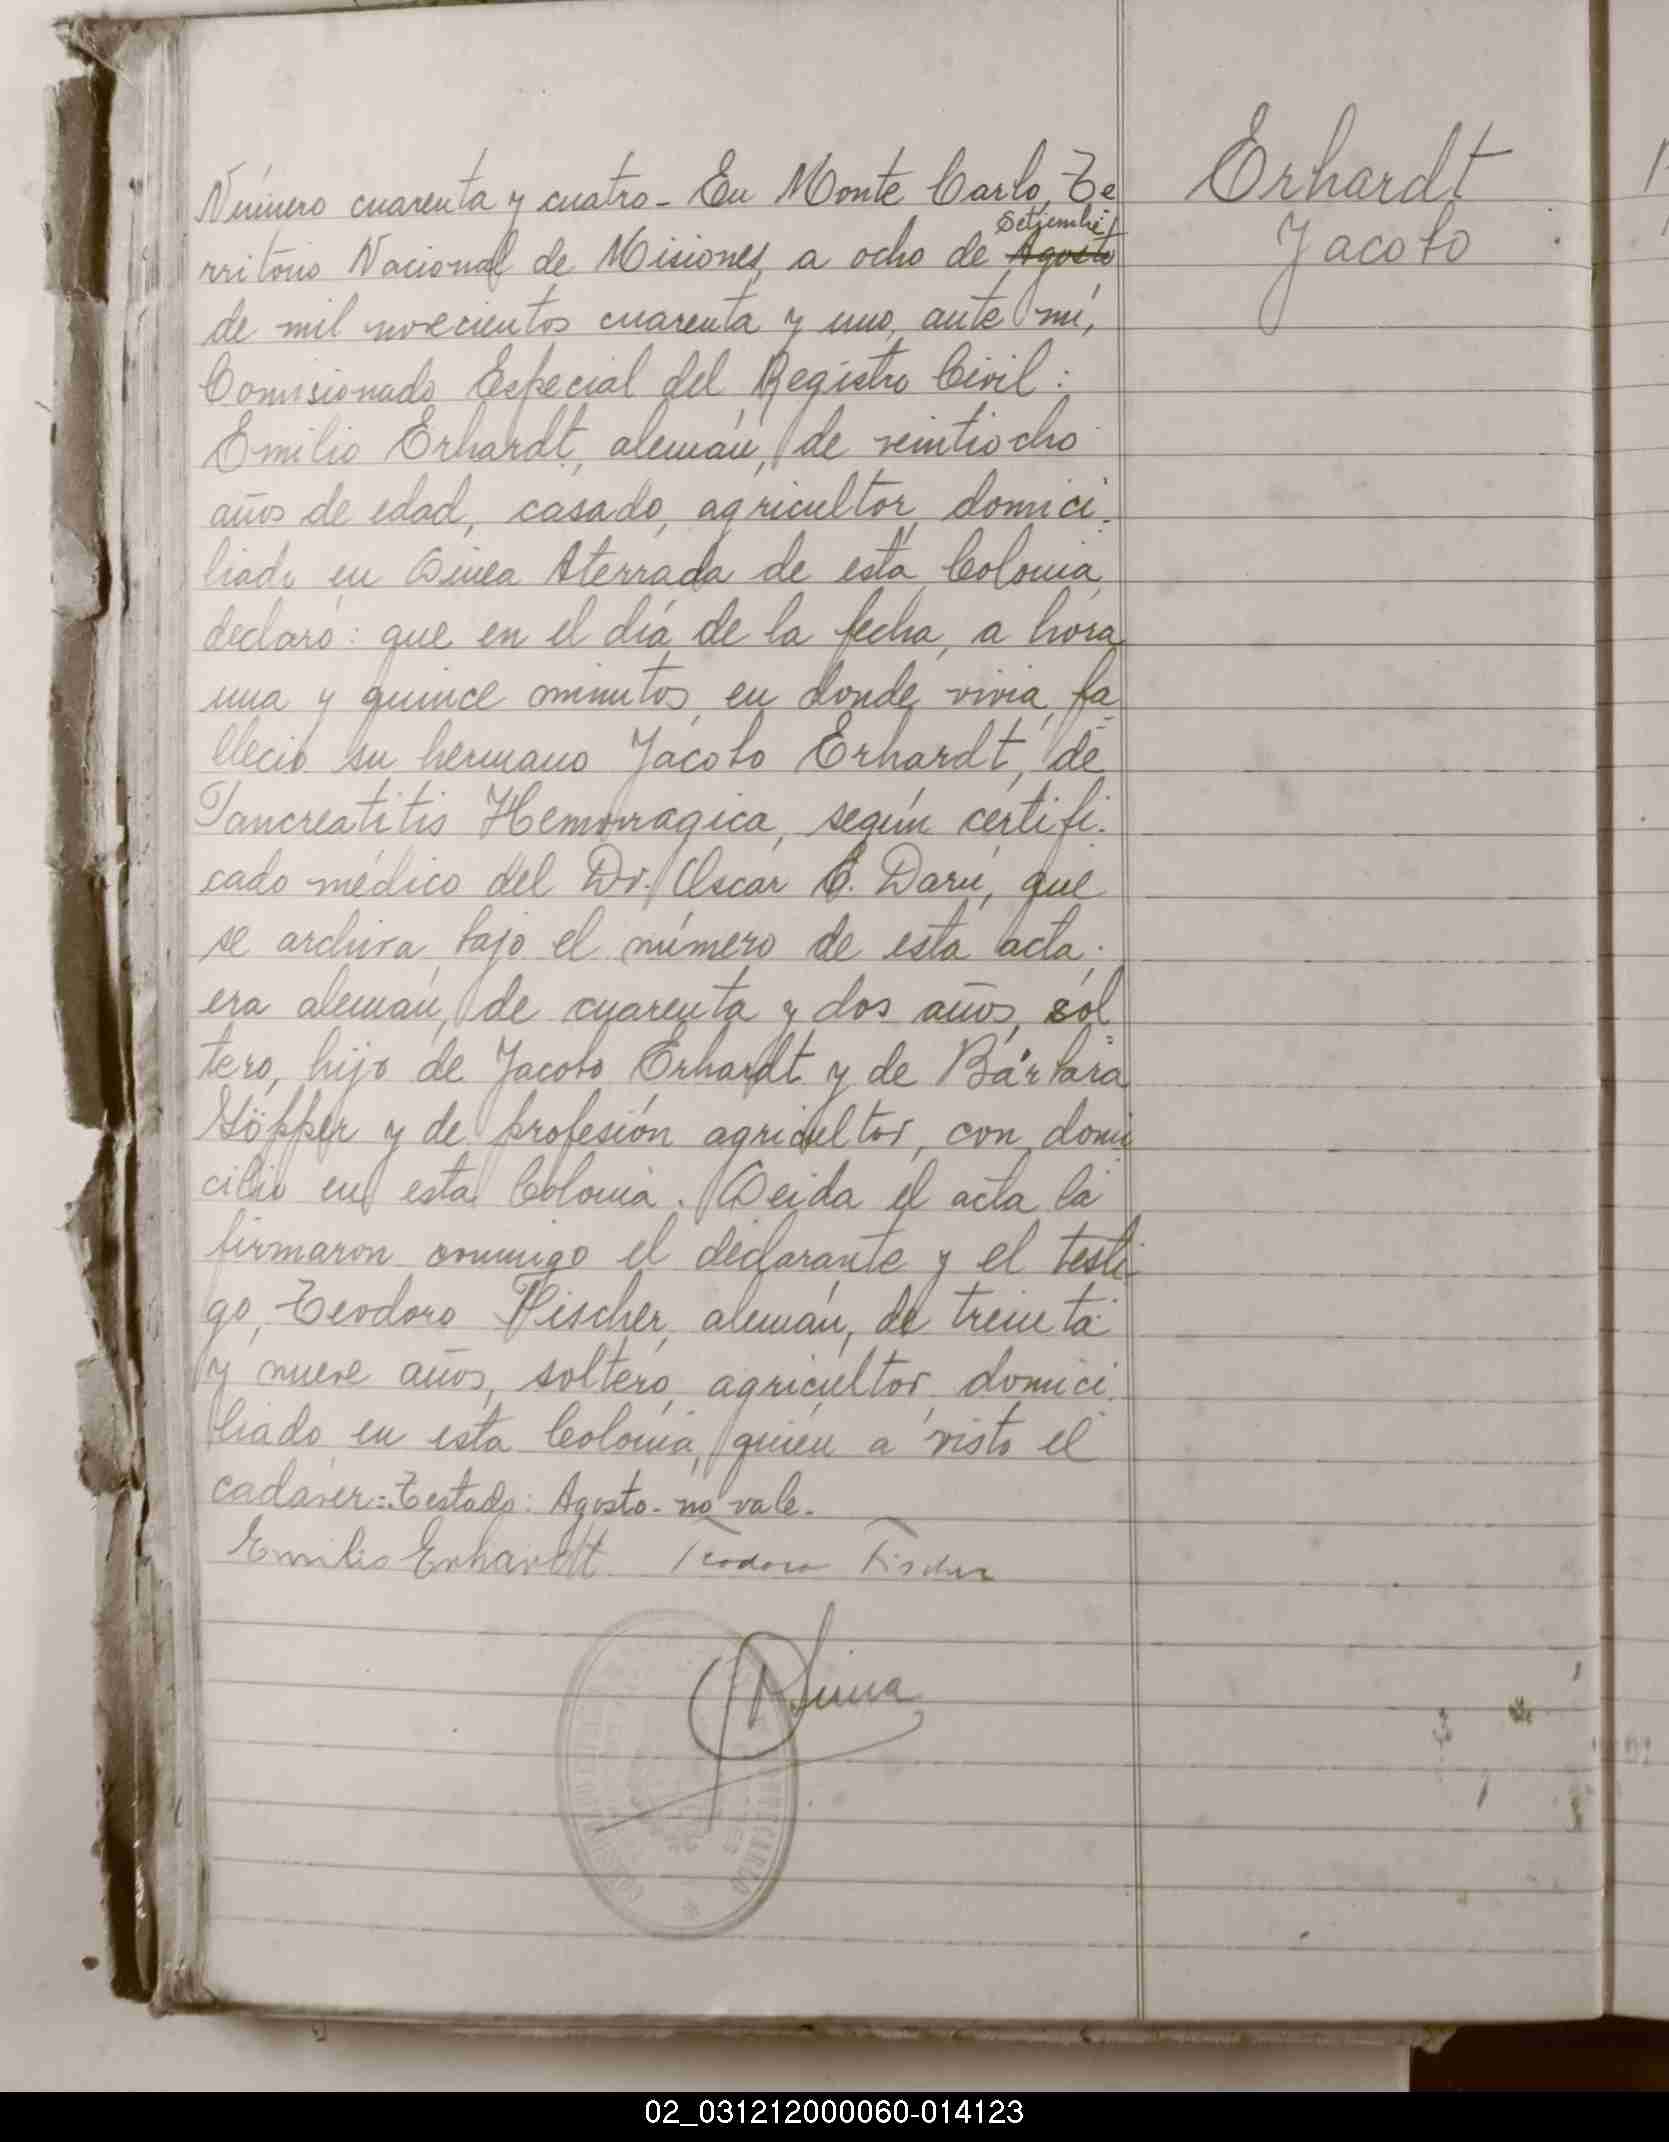 Erhardt
Jacobo
Número cuarenta y cuatro - En Monte Carlo, Te
Setiembre
rritorio Nacional de Misiones, a ocho de Agosto
de mil novecientos cuarenta y uno, ante mí,
Comisionado Especial del Registro Civil:
Emilio Erhardt, alemán, de veintiocho
años de edad, casado, agricultor, domici-
liado en Linea Aterrada de esta Colonia,
declaró: que en el día de la fecha, a hora
una y quince minutos, en donde vivia, fa-
lleció su hermano Jacobo Erhardt, de
Pancreatitis Hemorragica, según certifi-
cado médico del Dr. Oscar C. Darú, que
se archiva bajo el número de esta acta;
era alemán, de cuarenta y dos años, sol-
tero, hijo de Jacobo Erhardt y de Bárbara
Göpper y de profesión agricultor, con domi
cilio en esta Colonia. Leida el acta la
firmaron conmigo el declarante y el testi
go, Teodoro Fischer, alemán, de treinta
y nueve años, soltero, agricultor, domici-
liado en esta Colonia, quien a visto el
cadáver=Testado: Agosto - no vale.-
Emilio Erhardt. Teodoro Fischer
02_031212000060-014123